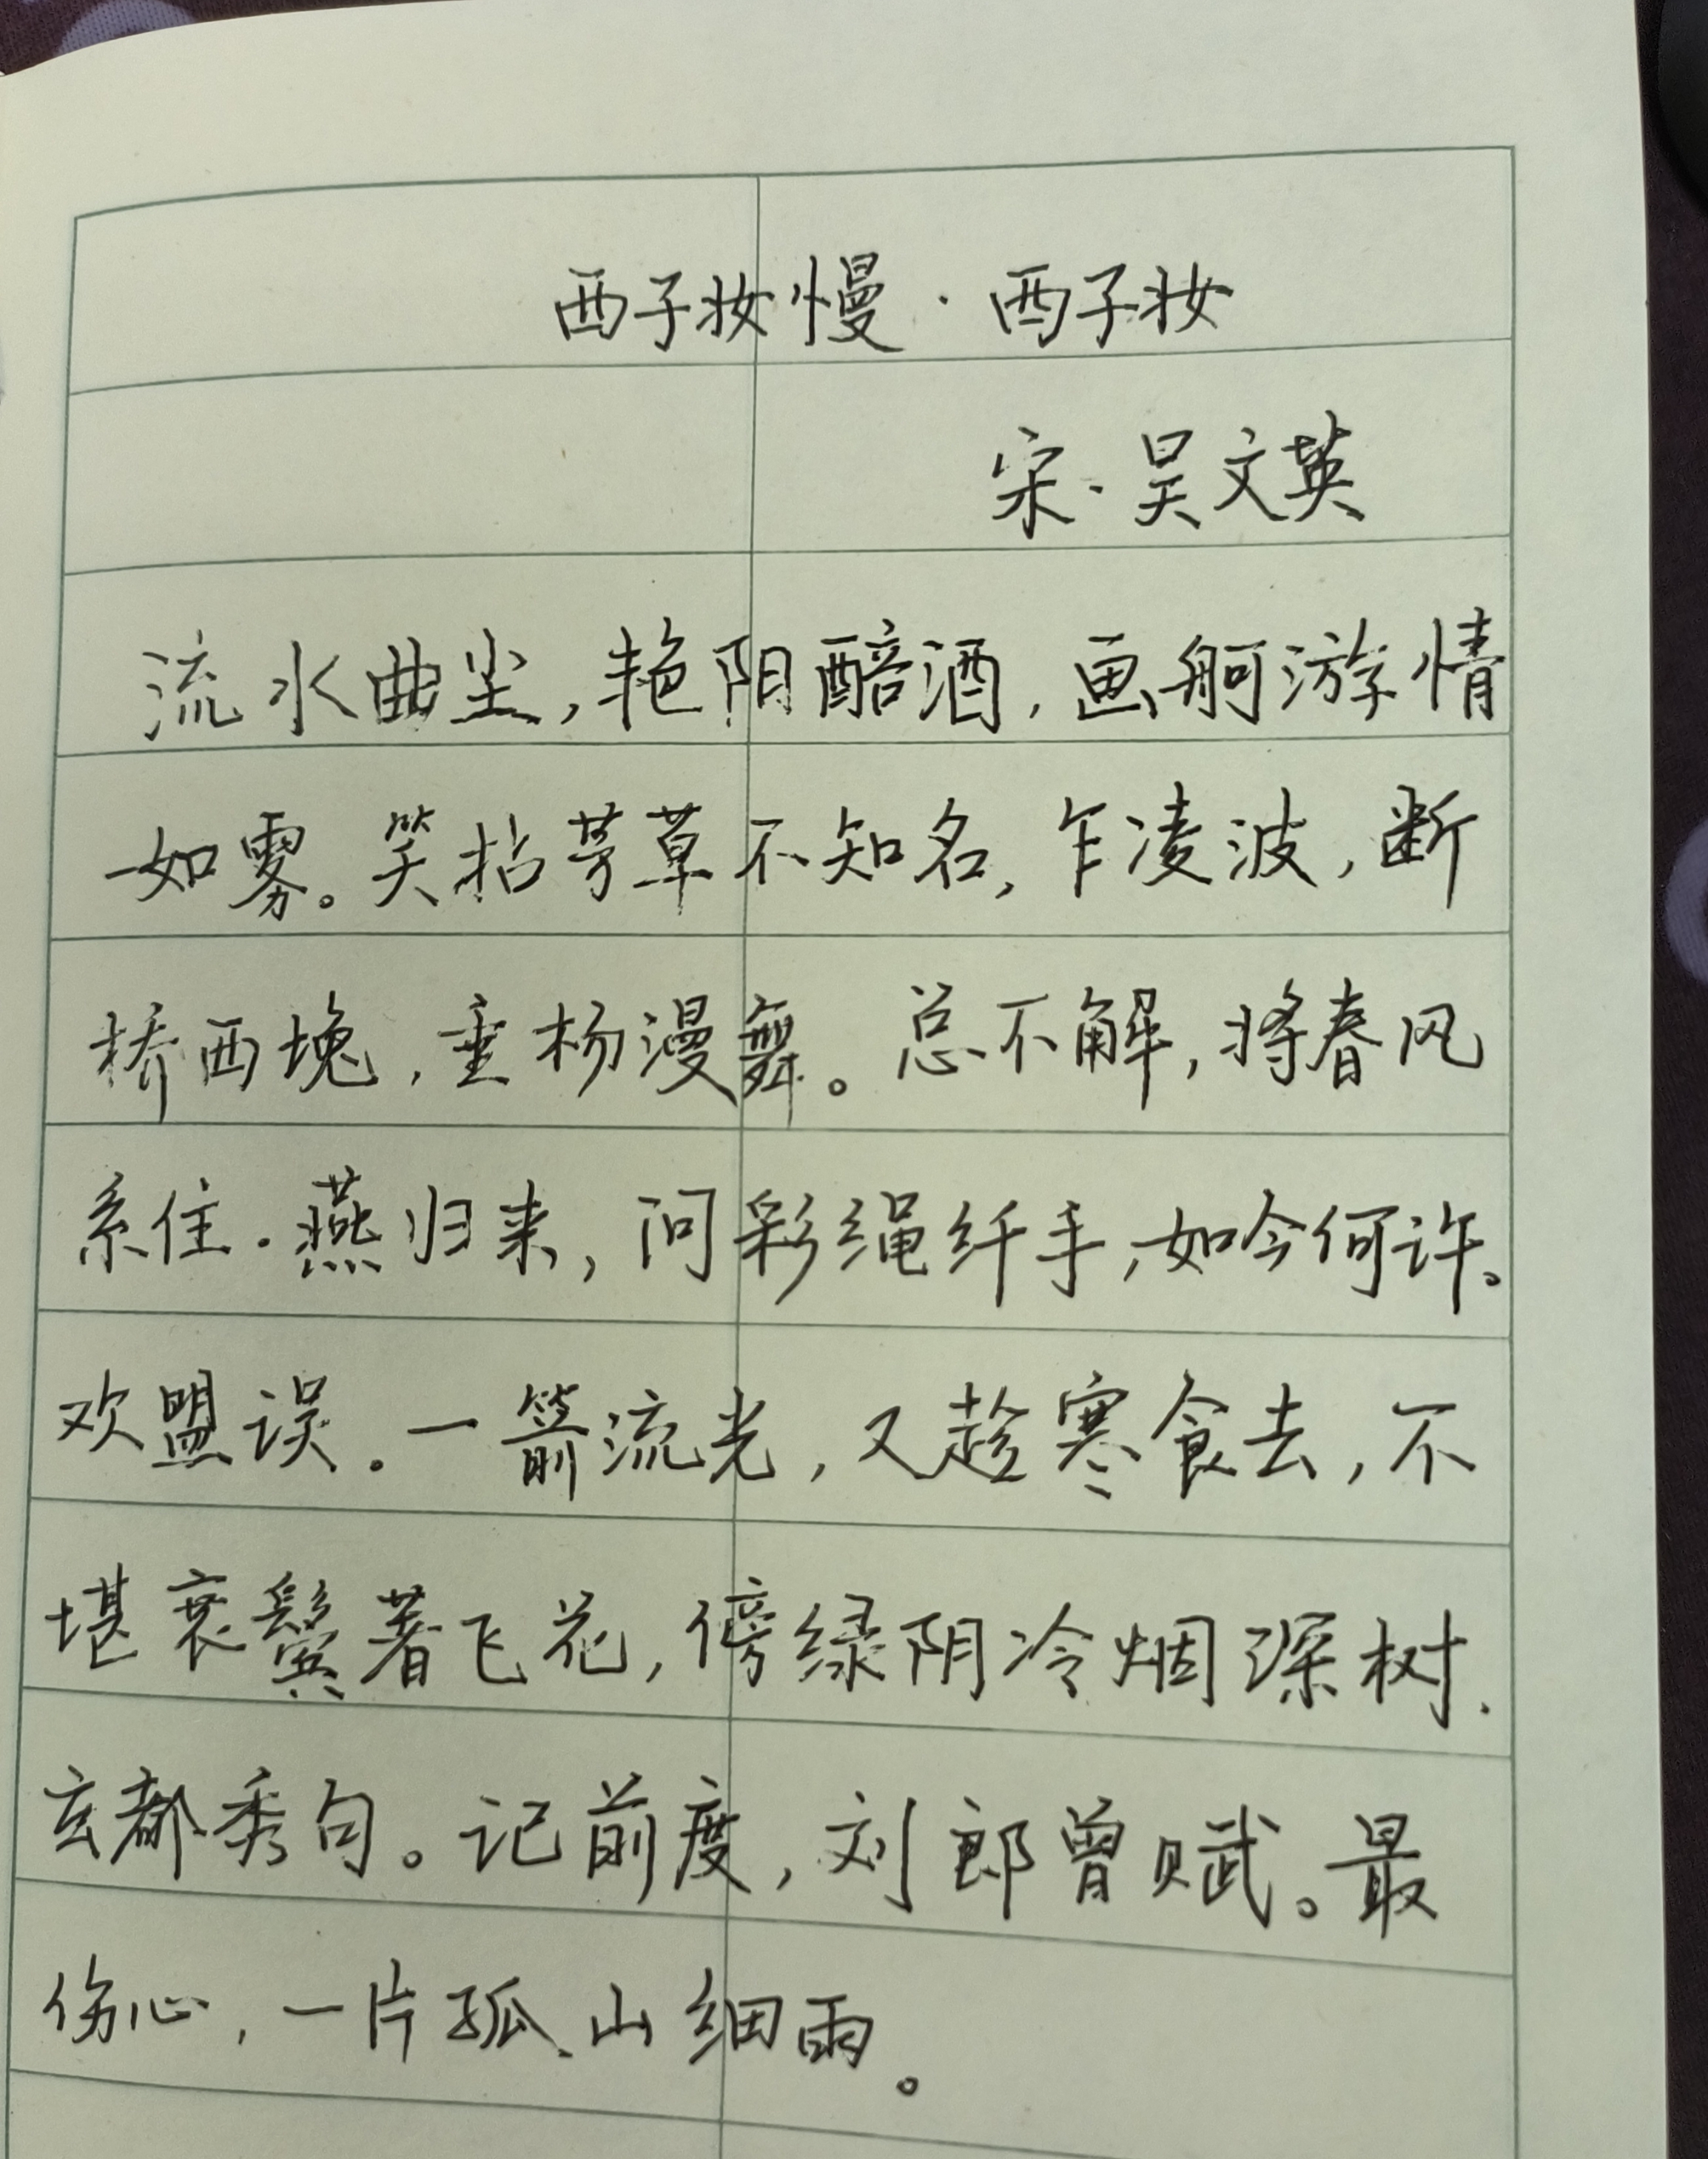 西子妆慢·西子妆
宋·吴文英
流水曲尘，艳阳醅酒，画舸游情
如雾。笑拈芳草不知名，乍凌波，断
桥西堍，垂杨漫舞。总不解，将春风
系住。燕归来，问彩绳纤手，如今何许。
欢盟误。一箭流光，又趁寒食去，不
堪衰鬓著飞花，傍绿阴冷烟深树.
玄都秀句。记前度，刘郎曾赋。最
伤心，一片孤山细雨。